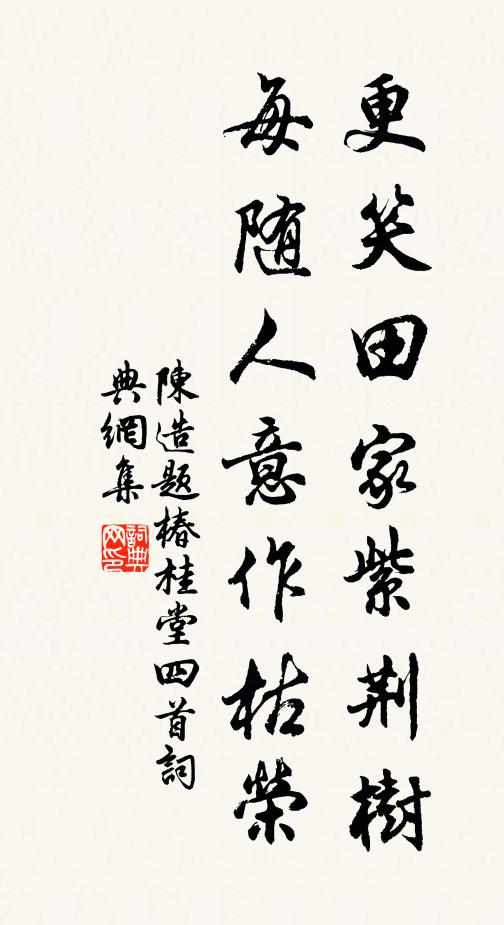 更笑田家紫荆樹
每随人意作枯榮
陳造题椿桂堂四首詞
典網集
詞典网印